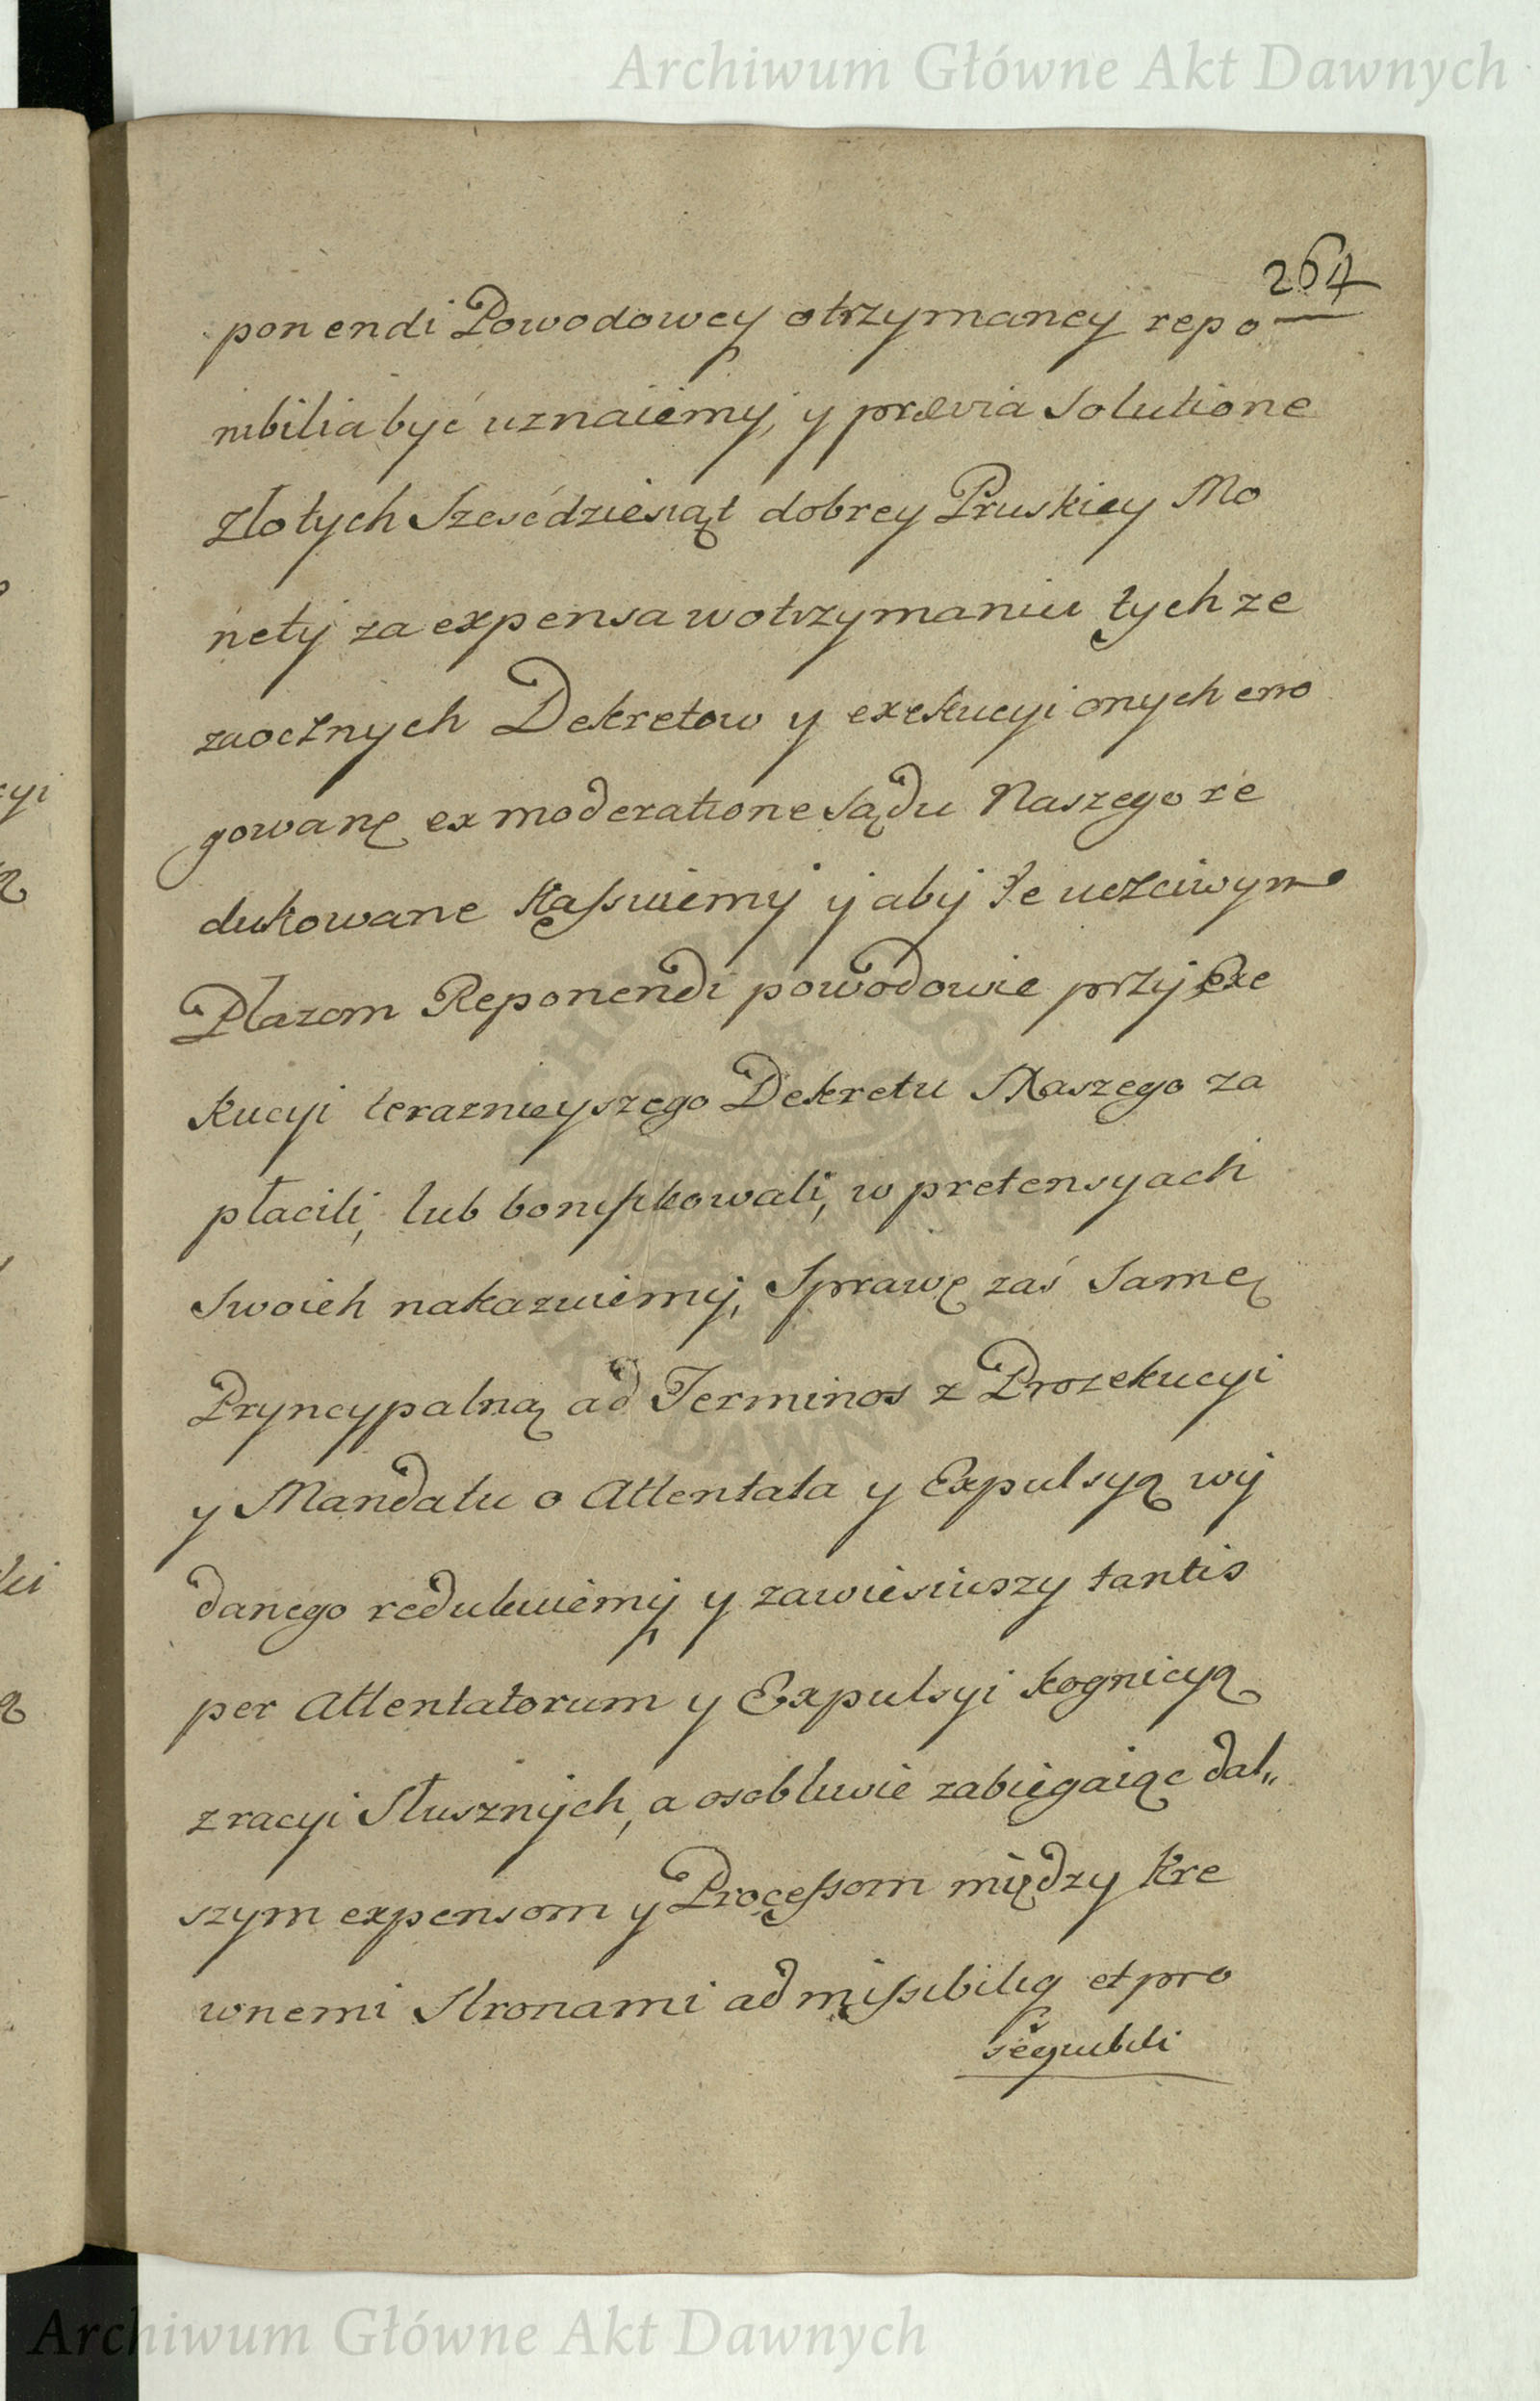 Archiwum Główne Akt Dawnych
264
ponendi Powodowey otrzymaney repo
nibilia być uznaiemy, y prævia Solutione
Złotych Sześćdziesiąt dobrey Pruskiey Mo
nety za expensa w otrzymaniu tychze
zaocznych Dekretow y exekucyi onych ero
gowanę ex moderatione Sądu Naszego re
dukowane Kassuiemy y aby te uczciwym
Płazom Reponendi powodowie przy Exe
kucyi teraznieyszego Dekretu Naszego za
płacili, lub bonifikowali, w pretensyach
Swoich nakazuiemy, Sprawę zaś Samę
Pryncypalną ad Terminos z Prozekucyi
y Mandatu o Attentata y Expulsyą wy
danego redukuiemy y zawiesiwszy tantis
per Attentatorum y Expulsyi kognicyą
z racyi Słusznych, a osobliwie zabiegaiąc dal„
szym expensom y Processom między Kre
wnemi Stronami admissibilią et pro
sequibili
Archiwum Główne Akt Dawnych